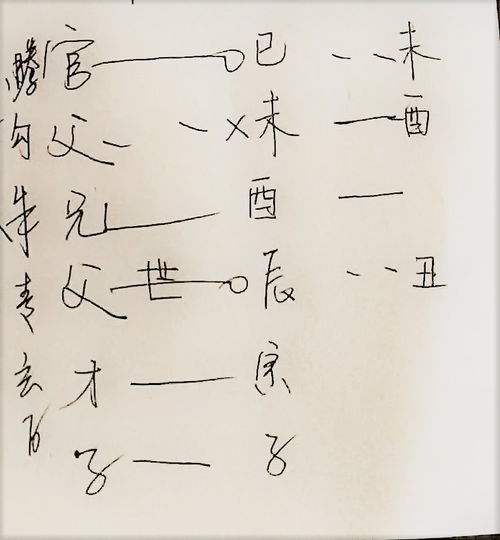 螣 官 —— ○ 巳 - - 未
勾 父 - - × 未 — 酉
朱 兄 —— 酉 —
青 父 — 世 — ○ 辰 - - 丑
玄 才 —— 寅
白 子 —— 子